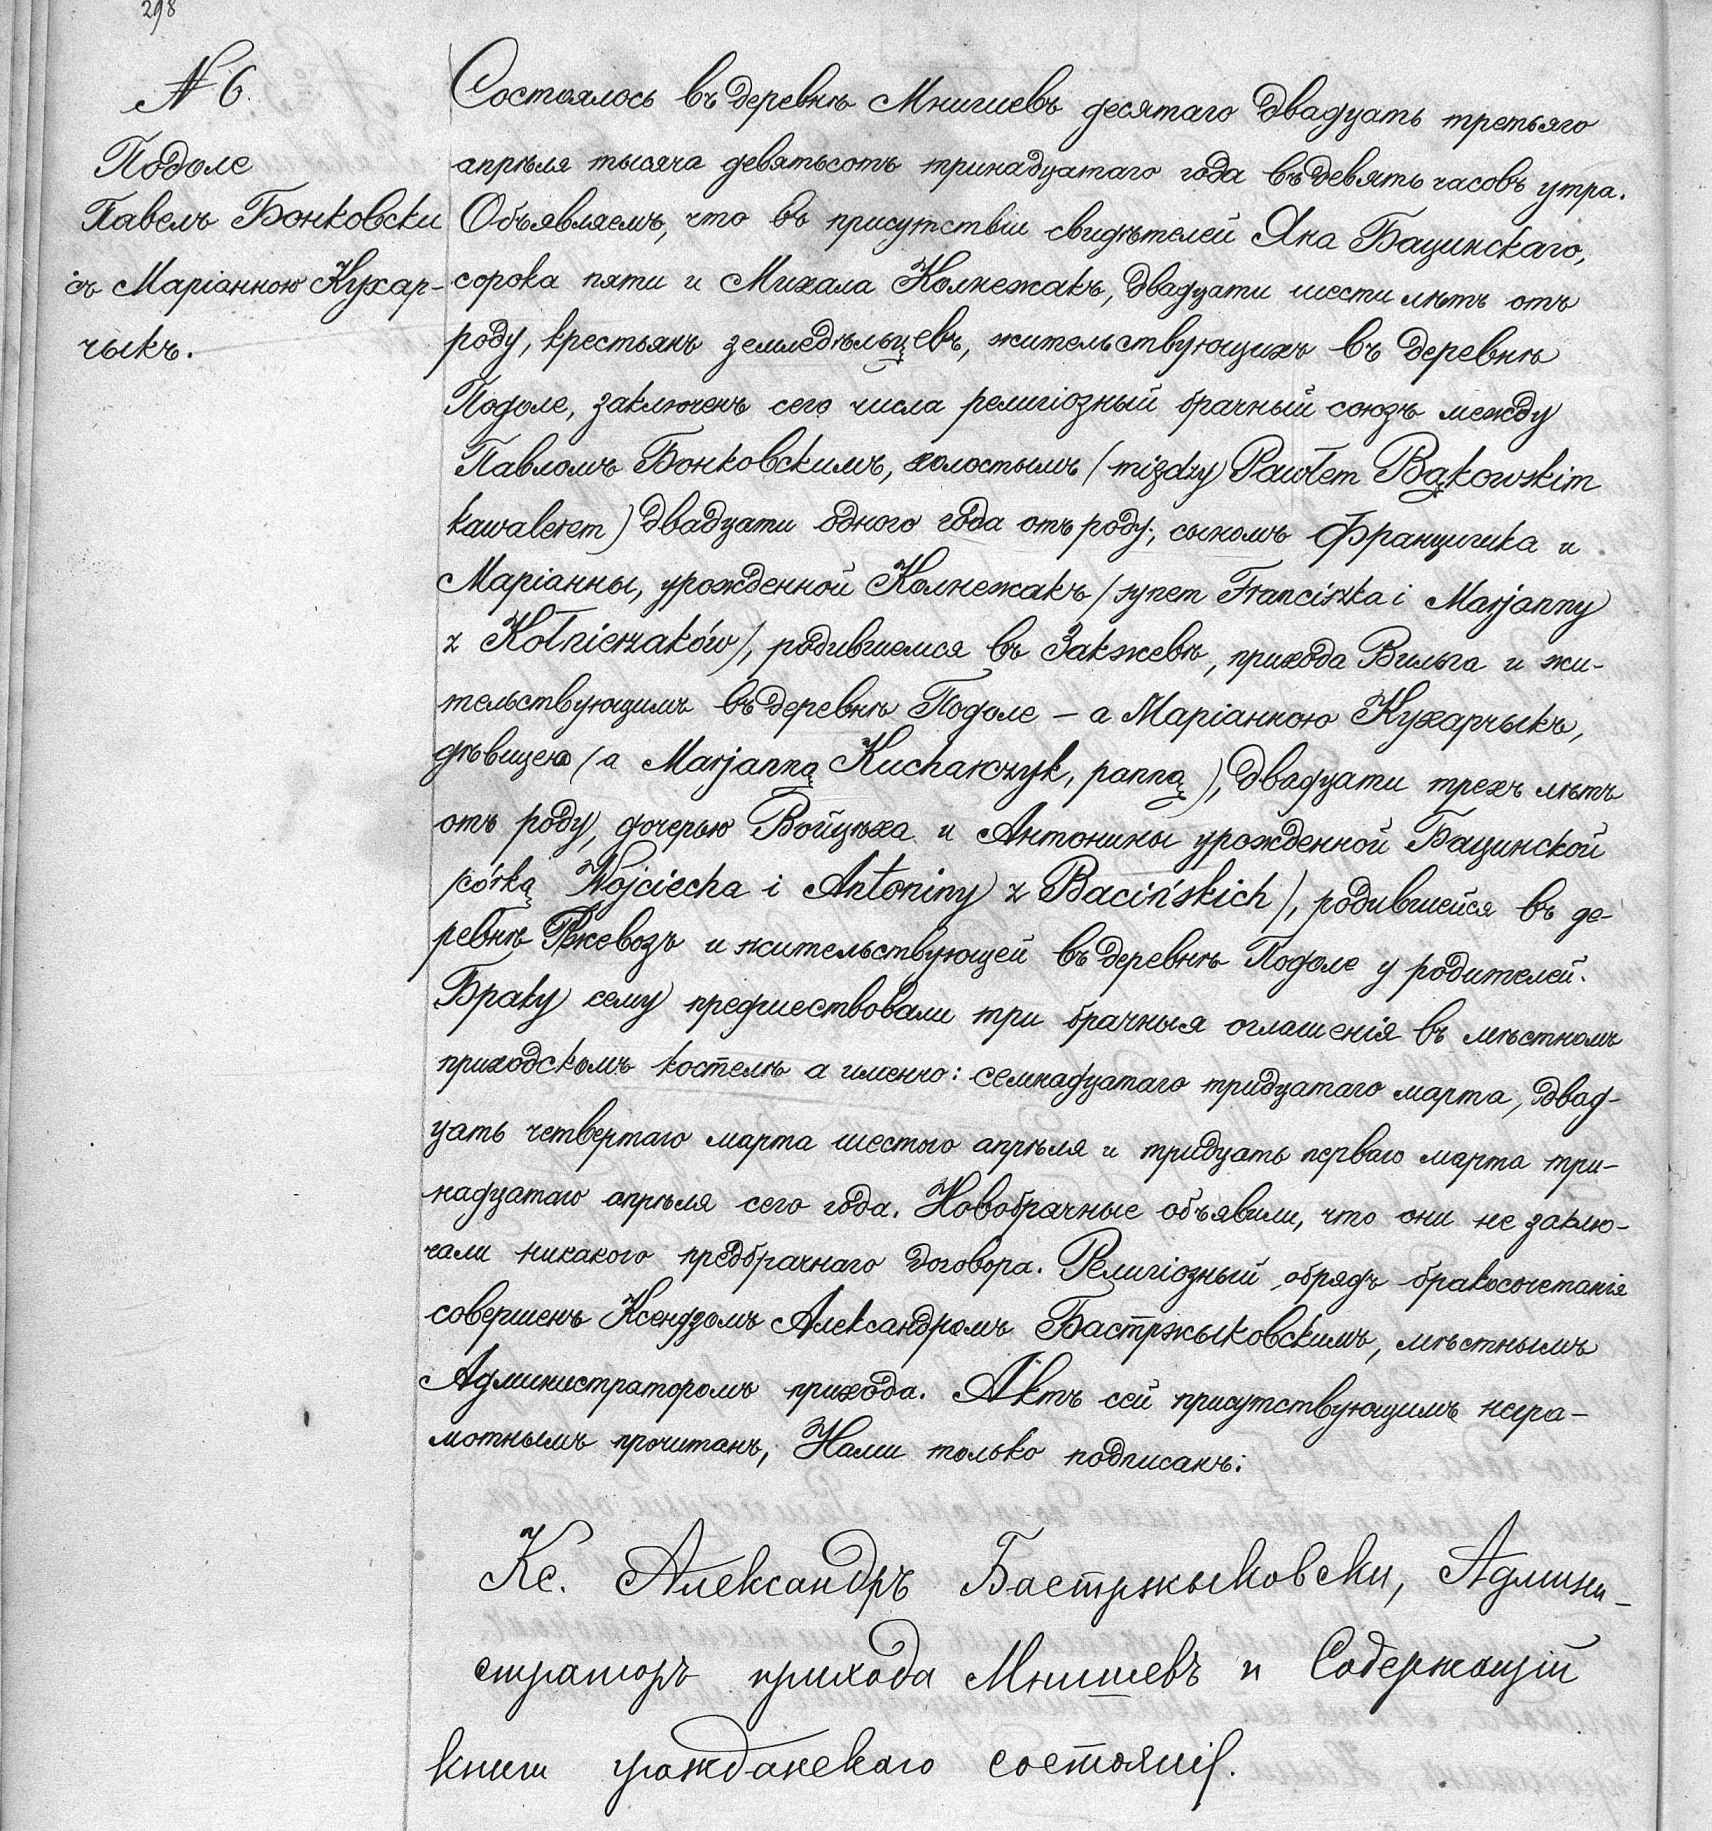 298
№ 6.
Подоле
Павелъ Бонковски
съ Маріанною Кухар-
чыкъ.
Состоялось въ деревнѣ Мнишевъ десятаго двадцать третьяго
апрѣля тысяча девятьсотъ тринадцатаго года въ девять часовъ утра.
Объявляемъ, что въ присутствіи свидѣтелей Яна Бацинскаго,
сорока пяти и Михала Колнежакъ, двадцати шести лѣтъ отъ
роду, крестьянъ земледѣльцевъ, жительствующихъ въ деревнѣ
Подоле, заключенъ сего числа религіозный брачный союзъ между
Павломъ Бонковскимъ, холостымъ (między Pawłem Bąkowskim
kawalerem) двадцати одного года отъ роду, сыномъ Францишка и
Маріанны, урожденной Колнежакъ (synem Franciszka i Marjanny
z Kołnierzaków), родившемся въ Закжевѣ, прихода Вильга и жи-
тельствующимъ въ деревнѣ Подоле – а Маріанною Кухарчыкъ,
дѣвицею (a Marjanną Kucharczyk, panną), двадцати трехъ лѣтъ
отъ роду, дочерью Войцѣха и Антонины урожденной Бацинской
(córką Wojciecha i Antoniny z Bacińskich), родившейся въ де-
ревнѣ Ржевозъ и жительствующей въ деревнѣ Подоле у родителей.
Браку сему предшествовали три брачныя оглашенія въ мѣстномъ
приходскомъ костелѣ а именно: семнадцатаго тридцатаго марта, двад-
цать четвертаго марта шестого апрѣля и тридцать перваго марта три-
надцатаго апрѣля сего года. Новобрачные объявили, что они не заклю-
чали никакого предбрачнаго договора. Религіозный обрядъ бракосочетанія
совершенъ Ксендзомъ Александромъ Бастржыковскимъ, мѣстнымъ
Администраторомъ прихода. Актъ сей присутствующимъ негра-
мотнымъ прочитанъ, Нами только подписанъ:
Кс. Александръ Бастржыковски, Админи-
страторъ прихода Мнишевъ и Содержащій
книги гражданскаго состоянія.